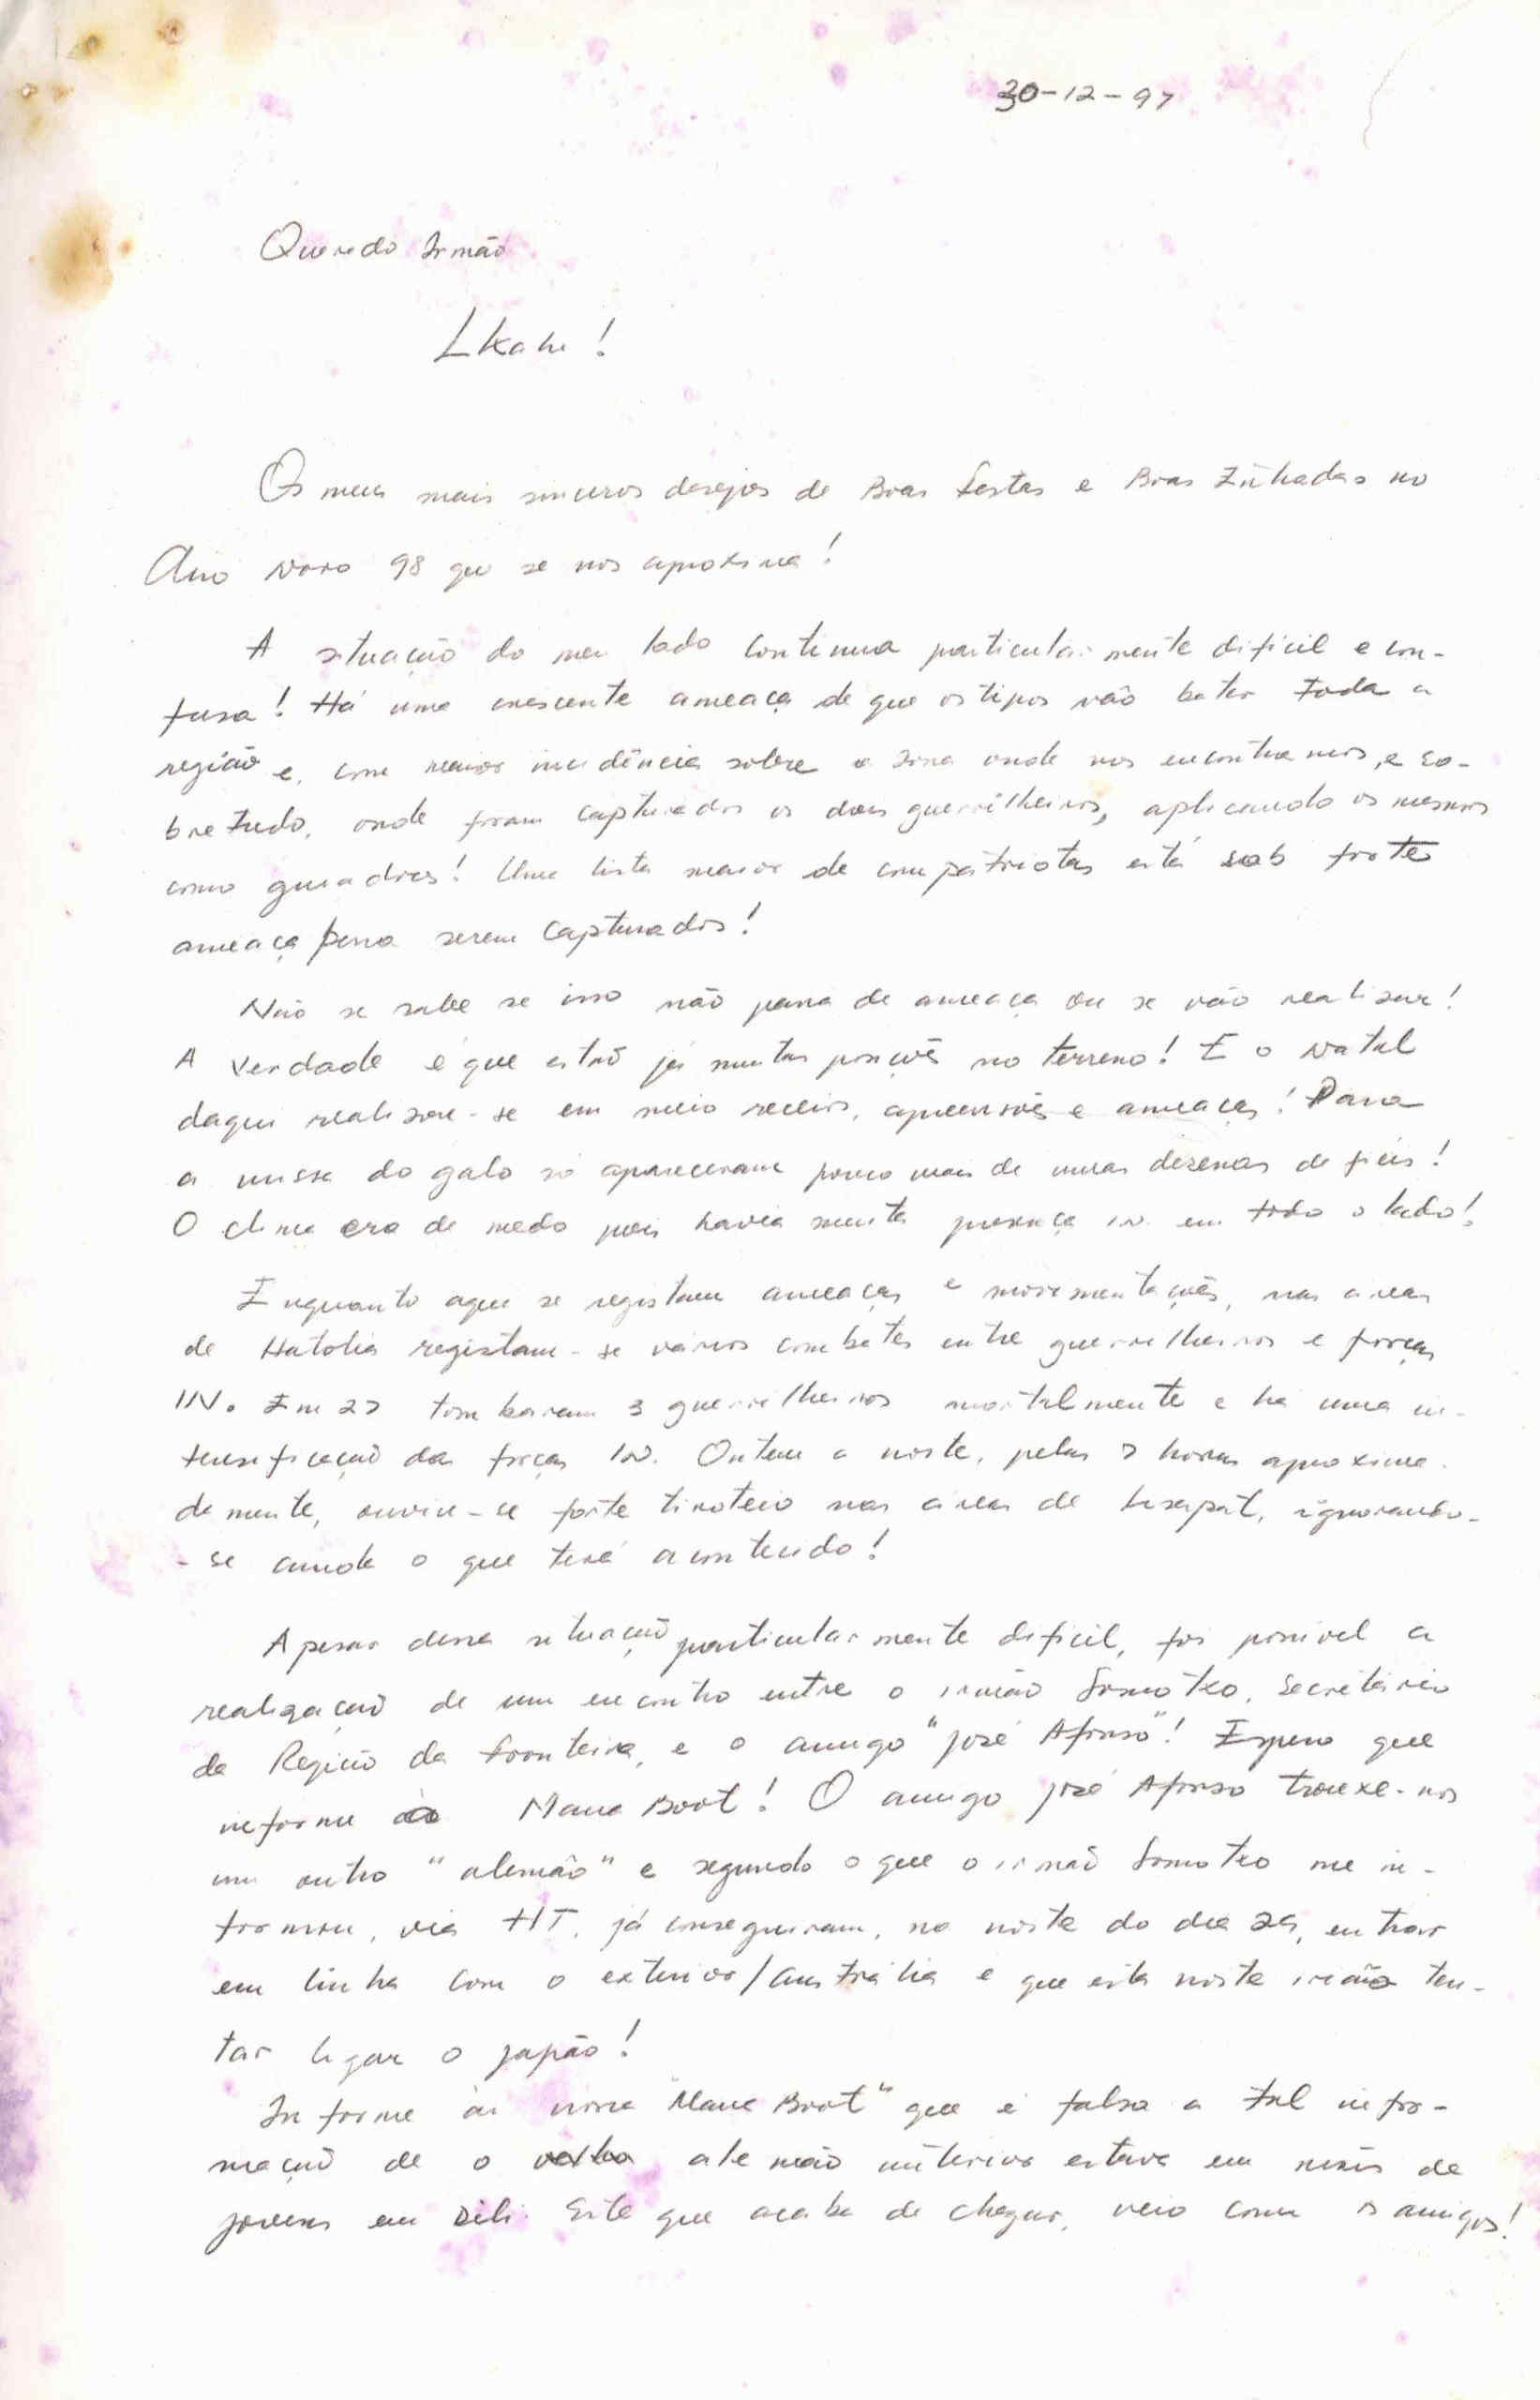 30-12-97
Querido Irmão
Lkahe!
Os meus mais sinceros desejos de Boas Festas e Boas Entradas no
Ano Novo 98 que se nos aproxima!
A situação do meu lado continua particularmente dificil e con-
fusa! Há uma crescente ameaça de que os tipos vão bater toda a
região e, com maior incidência sobre a zona onde nos encontramos, e so-
bretudo, onde foram capturados os dois guerrilheiros, aplicando os mesmos
como guiadores! Uma lista maior de compatriotas está sob forte
ameaça para serem capturados!
Não se sabe se isso não passa de ameaça ou se vão realizar!
A verdade é que estão já muitas posições no terreno! E o Natal
daqui realizou-se em meio receios, apreensões e ameaças! Para
a missa do galo só apareceram pouco mais de umas dezenas de fiéis!
O clima era de medo pois havia muita presença IN. em todo o lado!
Enquanto aqui se registam ameaças e movimentações, nas áreas
de Hatolia registam-se vários combates entre guerrilheiros e forças
IN. Em 27 tombaram 3 guerrilheiros mortalmente e há uma in-
tensificação das forças IN. Ontem a noite, pelas 7 horas aproxima-
damente, ouviu-se forte tiroteio nas áreas de ignorando-
-se ainda o que terá acontecido!
Apesar dessa situação particularmente dificil, foi possivel a
realização de um encontro entre o irmão Somotxo, Secretário
da Região da Fronteira, e o amigo "José Afonso"! Espero que
informe à Mana Boot! O amigo José Afonso trouxe-nos
um outro "alemão" e segundo o que o irmão Somotxo me in-
formou, via HT, já conseguiram, na noite do dia 29, entrar
em linha com o exterior/Austrália e que esta noite irão ten-
tar ligar o Japão!
Informe à nossa "Mana Boot" que é falsa a tal infor-
mação de o alemão anterior estava em mãos de
jovens em Dili. Este que acaba de chegar, veio com os amigos!